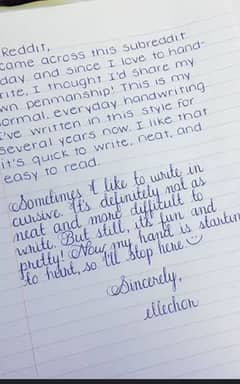 Reddit,
came across this subreddit
day and since I love to hand-
rite, I thought I'd share my
wn penmanship! This is my
ormal, everyday handwriting.
I've written in this style for
several years now. I like that
it's quick to write, neat, and
easy to read.
Sometimes I like to write in
cursive. It's definitely not as
neat and more difficult to
write. But still, it's fun and
pretty! Now my hand is startin
to hurt, so I'll stop here
Sincerely,
ellechon